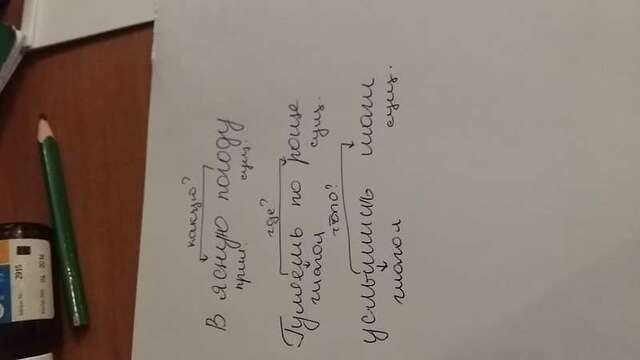 какую?
В ясную погоду
прил. сущ.
где?
Гулять по роще
глагол сущ.
что?
услышишь шаги
глагол сущ.
2915